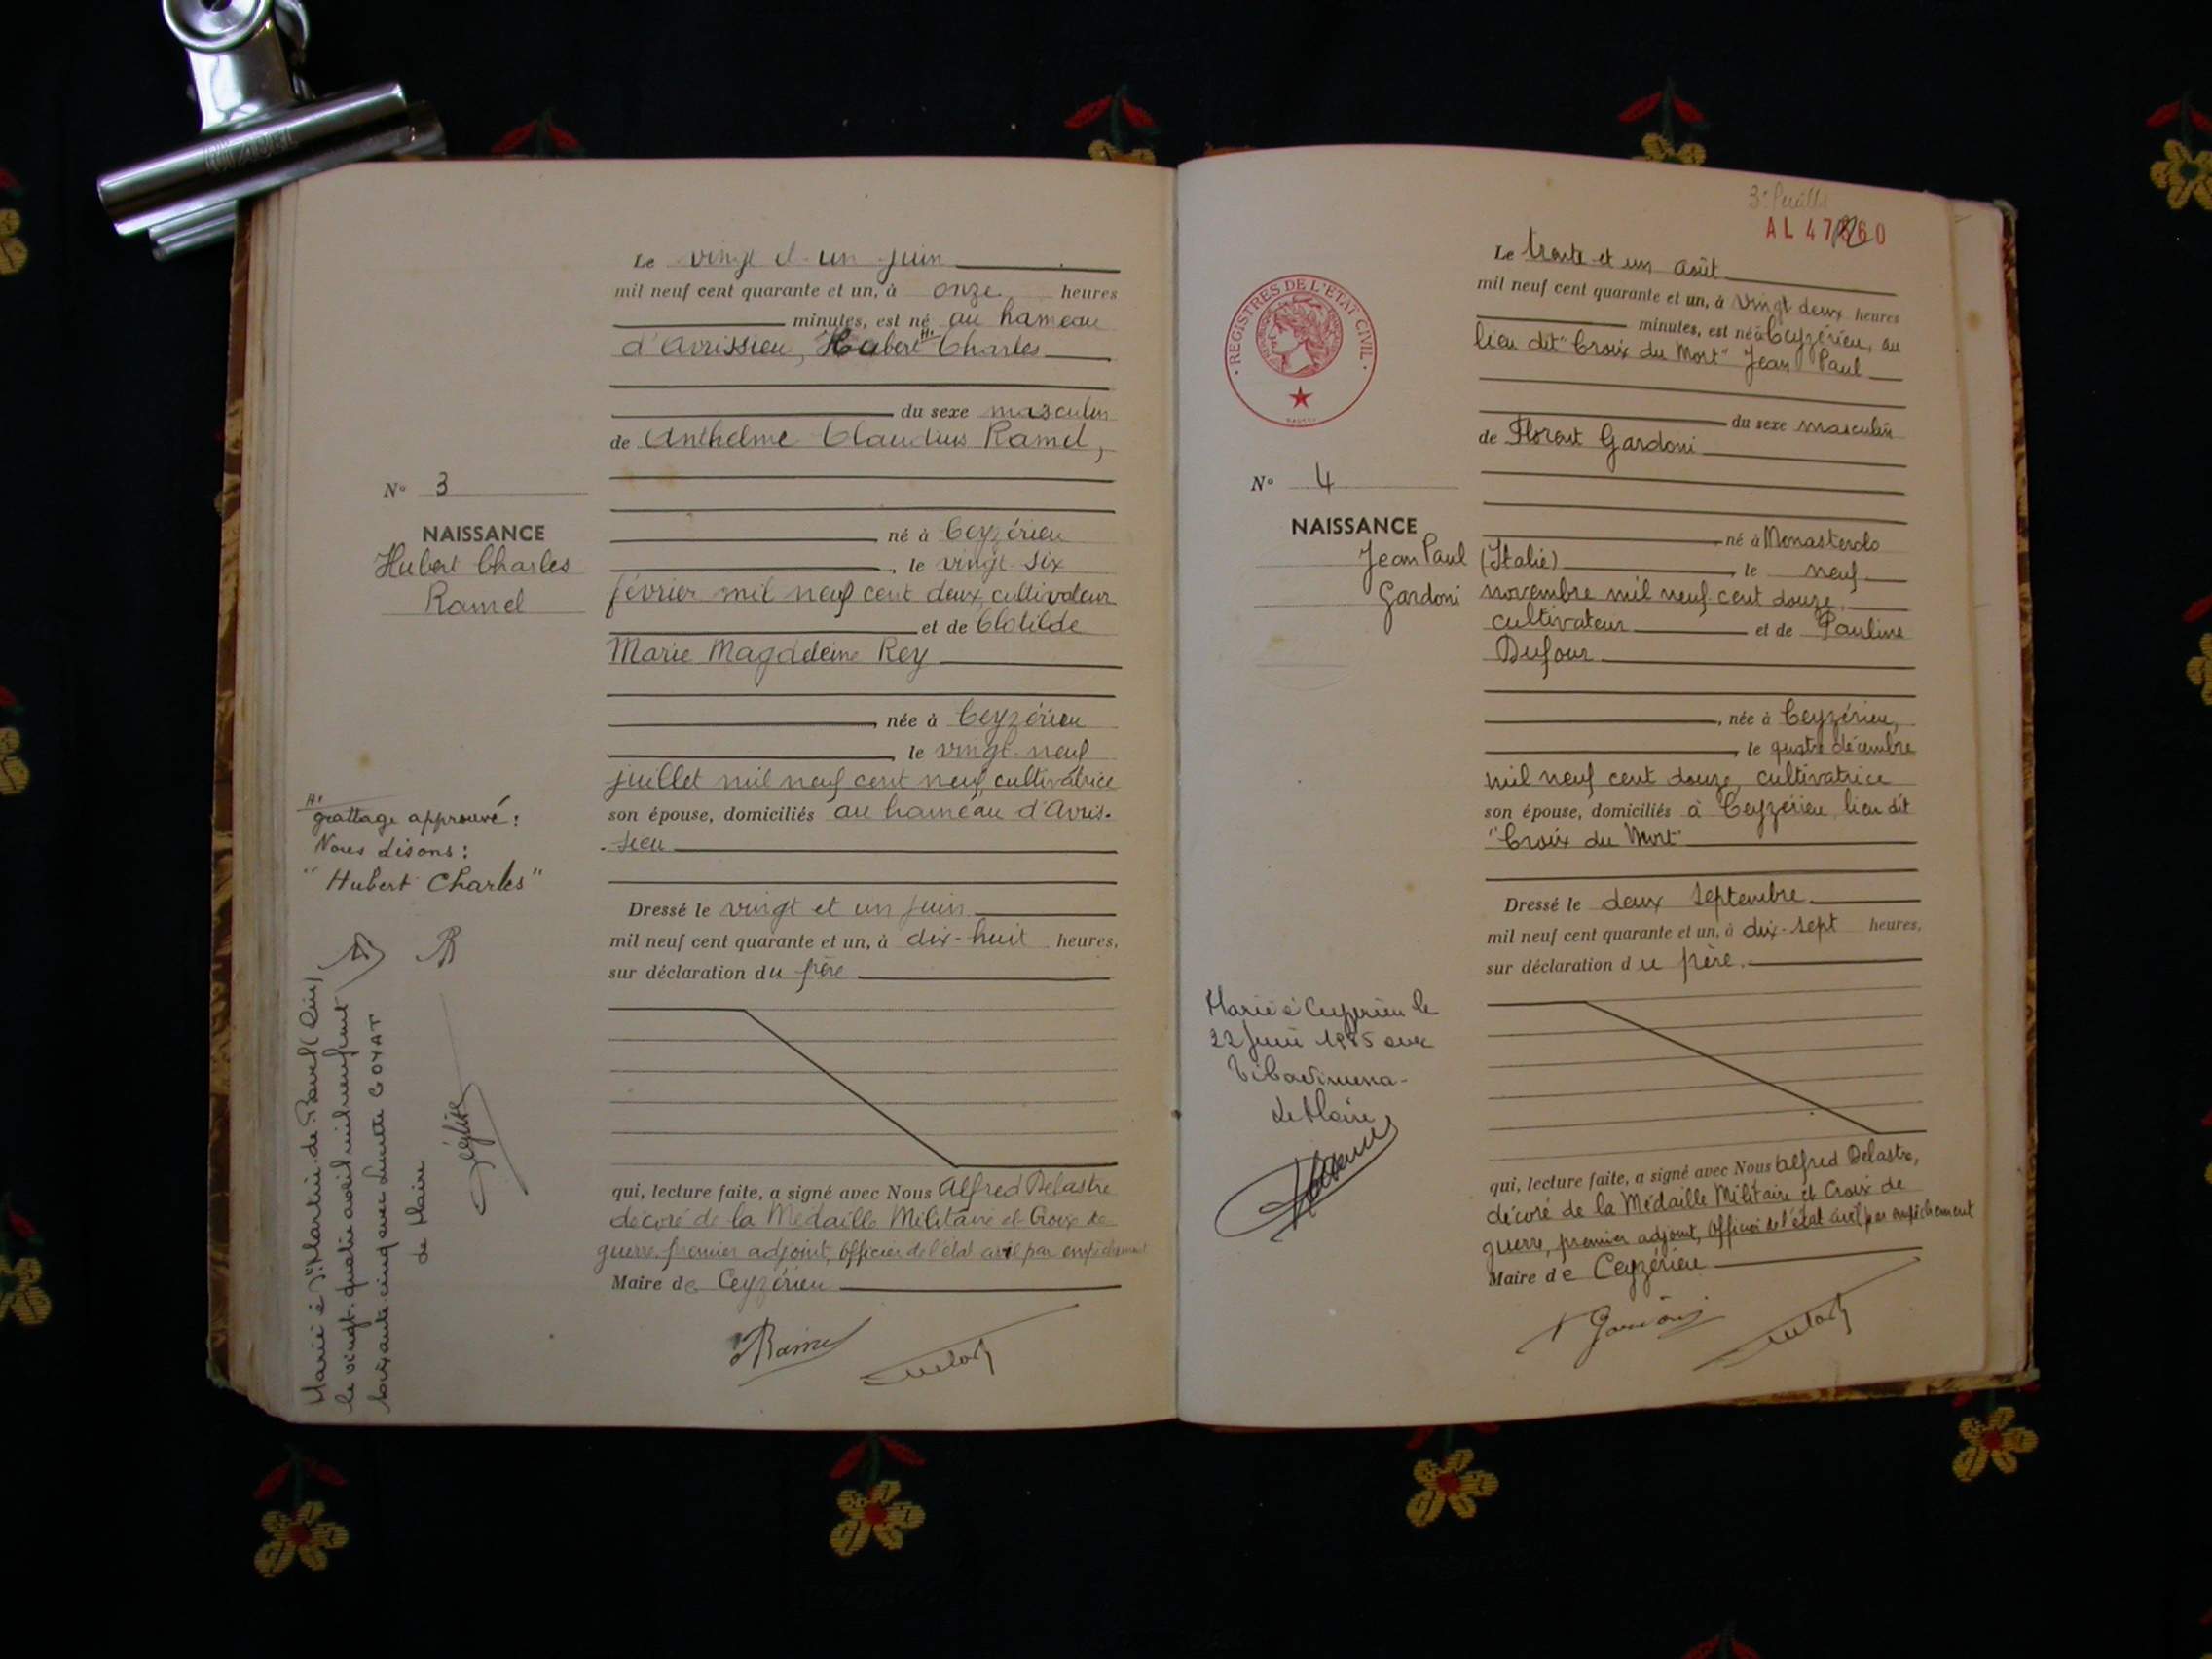 Le vingt et un juin
mil neuf cent quarante et un, à onze heures
minutes, est né au hameau
d'Avrissieu, Hubert Charles
du sexe masculin
de Anthelme Claudius Ramel,
N° 3
NAISSANCE
Hubert Charles
Ramel
né à Ceyzérieu
, le vingt six
février mil neuf cent deux, cultivateur
et de Clotilde
Marie Magdeleine Rey
, née à Ceyzérieu
, le vingt-neuf
juillet mil neuf cent neuf, cultivatrice
son épouse, domiciliés au hameau d'Avris-
-sieu
grattage approuvé:
Nous disons:
"Hubert Charles"
Dressé le vingt et un juin
mil neuf cent quarante et un, à dix-huit heures,
sur déclaration du père
qui, lecture faite, a signé avec Nous Alfred Delastre
décoré de la Médaille Militaire et Croix de
guerre, premier adjoint, officier de l'état civil par empêchement
Maire de Ceyzérieu
Ramel
Marié à St Martin de Bavel (Ain)
le vingt quatre avril mil neuf cent
soixante cinq avec Lucette GOYAT
Le Maire
3e feuille
AL 47 60
REGISTRES DE L'ÉTAT CIVIL
Le trente et un août
mil neuf cent quarante et un, à vingt deux heures
minutes, est né à Ceyzérieu, au
lieu dit "Croix du Mort" Jean Paul
du sexe masculin
de Florent Gardoni
N° 4
NAISSANCE
Jean Paul
Gardoni
né à Monasterolo
(Italie) le neuf
novembre mil neuf cent douze,
cultivateur et de Pauline
Dufour
, née à Ceyzérieu,
, le quatre décembre
mil neuf cent douze, cultivatrice
son épouse, domiciliés à Ceyzérieu, lieu dit
"Croix du Mort"
Dressé le deux septembre
mil neuf cent quarante et un, à dix-sept heures,
sur déclaration du père.
Marié à Ceyzérieu le
22 juin avec
Le Maire
qui, lecture faite, a signé avec Nous Alfred Delastre,
décoré de la Médaille Militaire et Croix de
guerre, premier adjoint, officier de l'état civil par empêchement
Maire de Ceyzérieu
Gardoni